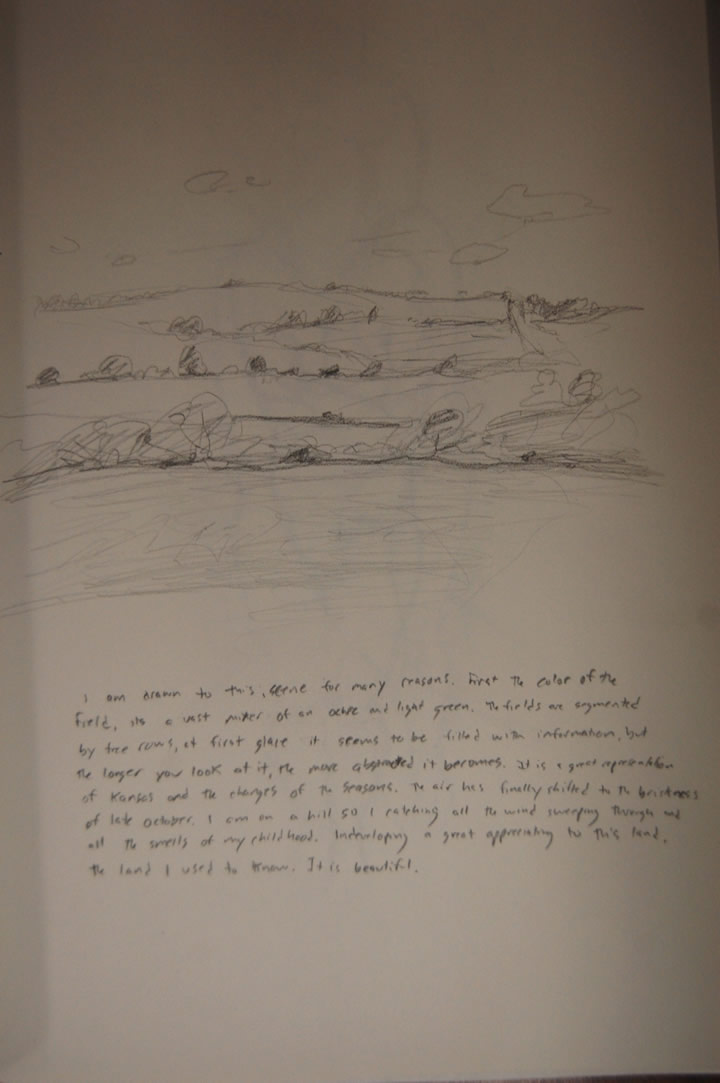 I am drawn to this scene for many reasons. First the color of the
field, its a vast mixer of an ocher and light green. The fields are segmented
by tree rows, at first glare it seems to be filled with information, but
the longer you look at it, the more abstracted it becomes. It is a great representation
of Kansas and the changes of the seasons. The air has finally shifted to the briskness
of late october. I am on a hill so I catching all the wind sweeping through and
all the smells of my childhood. Indeveloping a great appreciating to this land,
the land I used to know. It is beautiful.